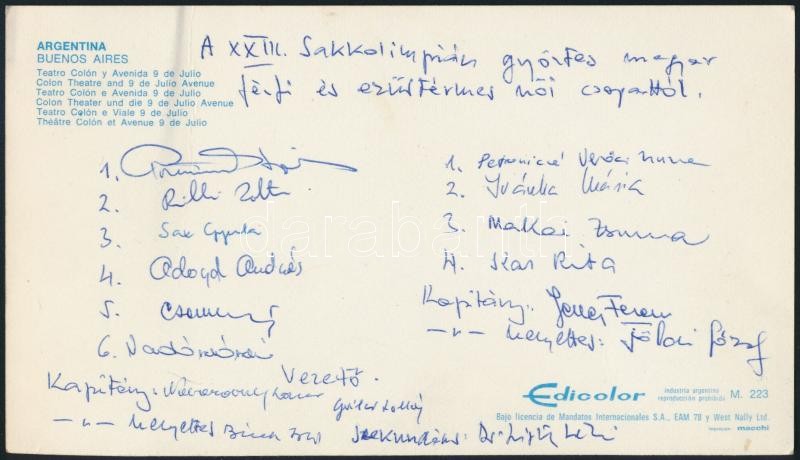 ARGENTINA
BUENOS AIRES
Teatro Colón y Avenida 9 de Julio
Colon Theatre and 9 de Julio Avenue
Teatro Colón e Avenida 9 de Julio
Colon Theater und die 9 de Julio Avenue
Teatro Colón e Viale 9 de Julio
Théâtre Colón et Avenue 9 de Julio
A XXIII. Sakkolimpián győztes magyar
férfi és ezüstérmes női csapattól.
1.
2. Ribli Zoltán
3. Sax Gyula
4. Adorján András
5.
6. Vadász
Kapitány:
— " — helyettes
Vezető.
1. Petronicné Verőci Zsuzsa
2. Ivánka Mária
3. Makai Zsuzsa
4. Kas Rita
Kapitány:
— " — helyettes: Földi József
Szekundáns:
darabanth
Edicolor
industria argentina
reproducción prohibida
M. 223
Bajo licencia de Mandatos Internacionales S.A., EAM 78 y West Nally Ltd.
macchi